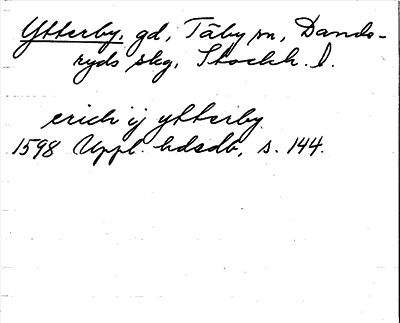 Ytterby, gd, Täby sn, Dande-
ryds skg, Stockh. l.
erich ij ytterby
1598 Uppl. hdsdb, s. 144.